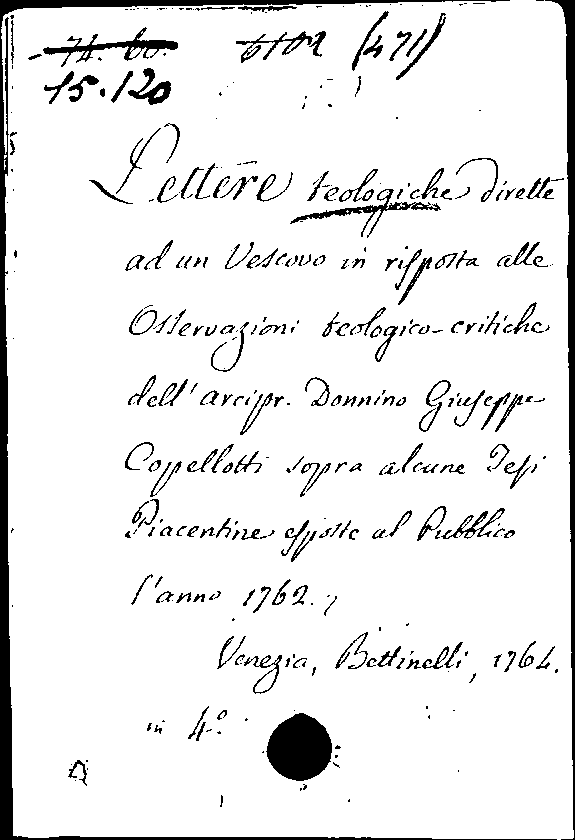 74. 60. 6102 (471)
15.120
Lettere teologiche dirette
ad un Vescovo in risposta alle
Osservazioni teologico-critiche
dell'arcipr. Donnino Giuseppe
Copellotti sopra alcune Tesi
Piacentine esposte al Pubblico
l'anno 1762.
Venezia, Bettinelli, 1764.
in 4º